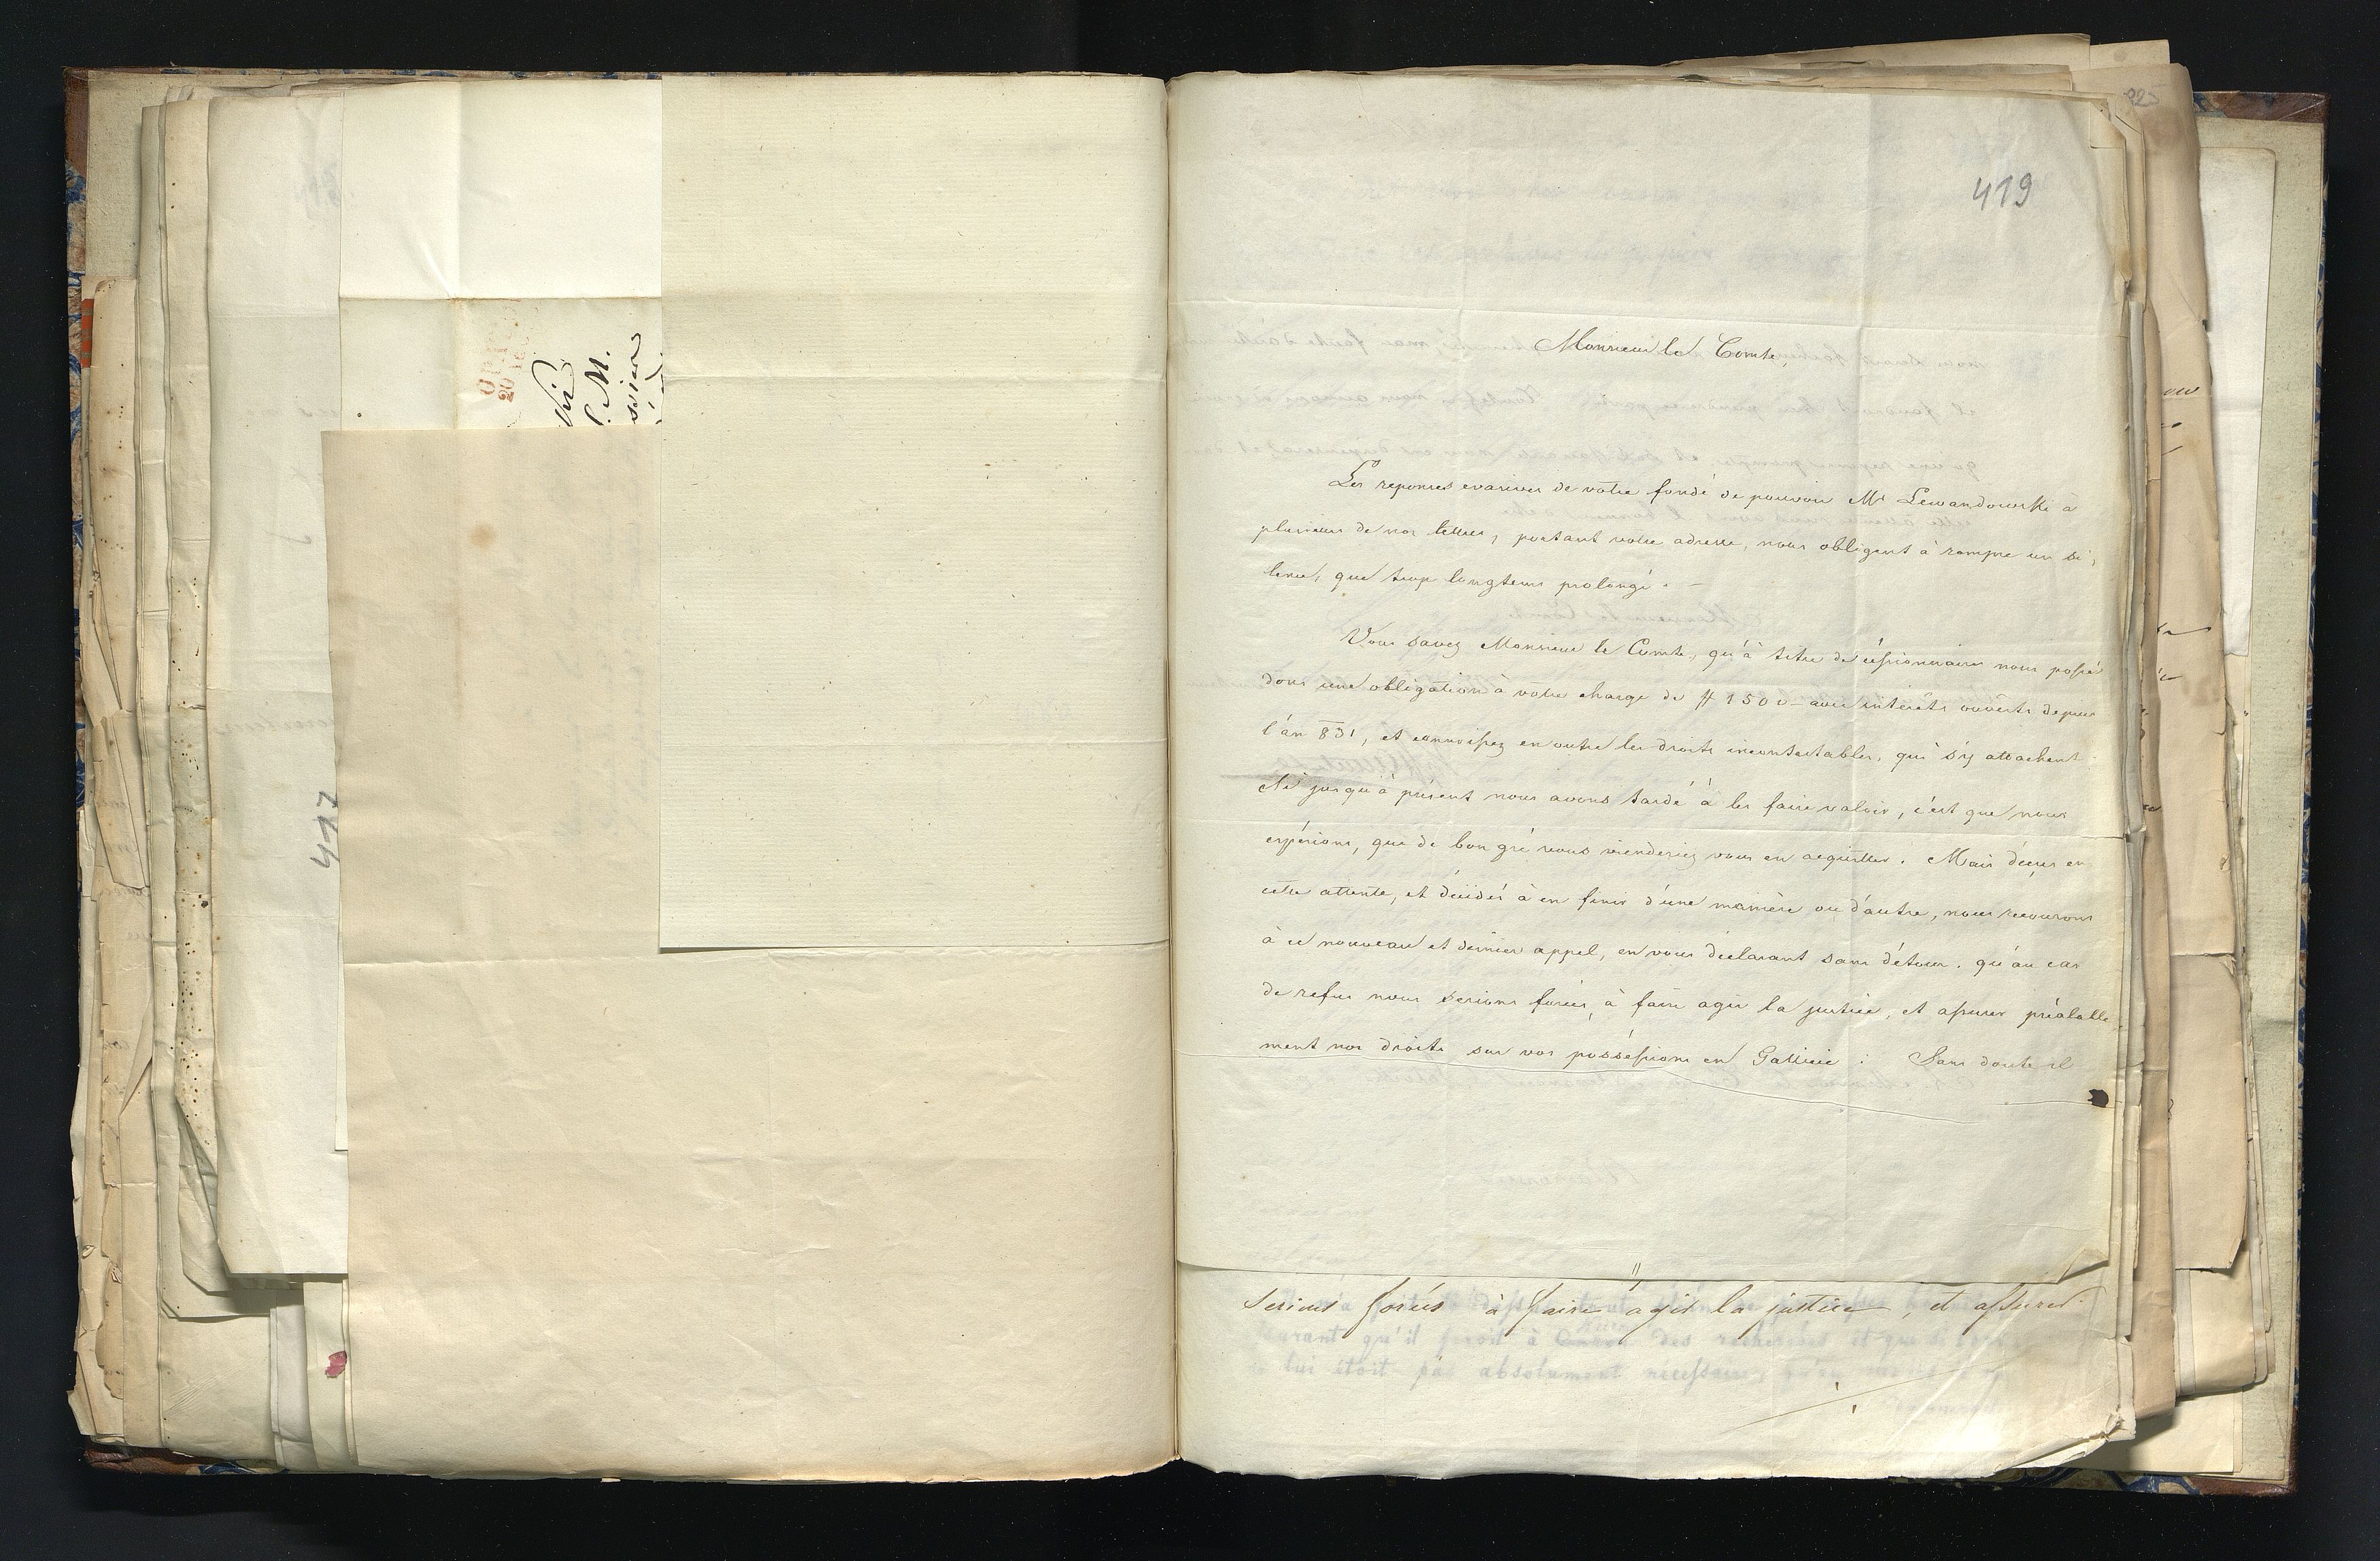 417
419
Monsieur le Comte,
Les reponses evasives de votre fondé de pouvoir Mr Lewandowski à
plusieurs de nos lettres, portant votre adresse, nous obligent à rompre un si,
lence, que trop longtems prolongé. –
Vous savez Monsieur le Comte, qu'à titre de cessionnaires nous possé
dons une obligation à votre charge de # 1500 – avec intérêts ouverts depuis
l'an 831, et connoissez en outre les droits incontestables, qui s'y attachent.
Si jusqu'à présent nous avons tardé à les faire valoir, c'est que nous
espérions, que de bon gré vous viendriez vous en acquitter. Mais déçus en
cette attente, et décidés à en finir d'une manière ou d'autre, nous recourons
à ce nouveau et dernier appel, en vous déclarant sans détour, qu'au cas
de refus nous serions forcés, à faire agir la justice, et assurer préalable
ment nos droits sur vos possessions en Gallicie : Sans doute il
serions forcés à faire agir la justice, et assurer